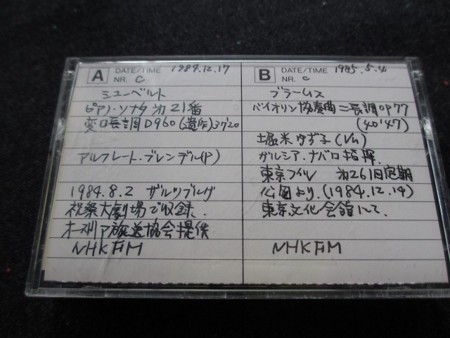 A DATE/TIME 1984.12.17
NR. C
シューベルト
ピアノ・ソナタ 第21番
変ロ長調 D960 (遺作) 37'20
アルフレート・ブレンデル(P)
1984.8.2 ザルツブルグ
祝祭大劇場で収録.
オーストリア放送協会提供
NHKFM
B DATE/TIME 1985.5.
NR. C
ブラームス
バイオリン協奏曲 ニ長調 OP77
(40'47)
堀米ゆず子 (Vn)
ガルシア・ナバロ指揮
東京フィル 第261回定期
公演より. (1984.12.14)
東京文化会館にて.
NHKFM